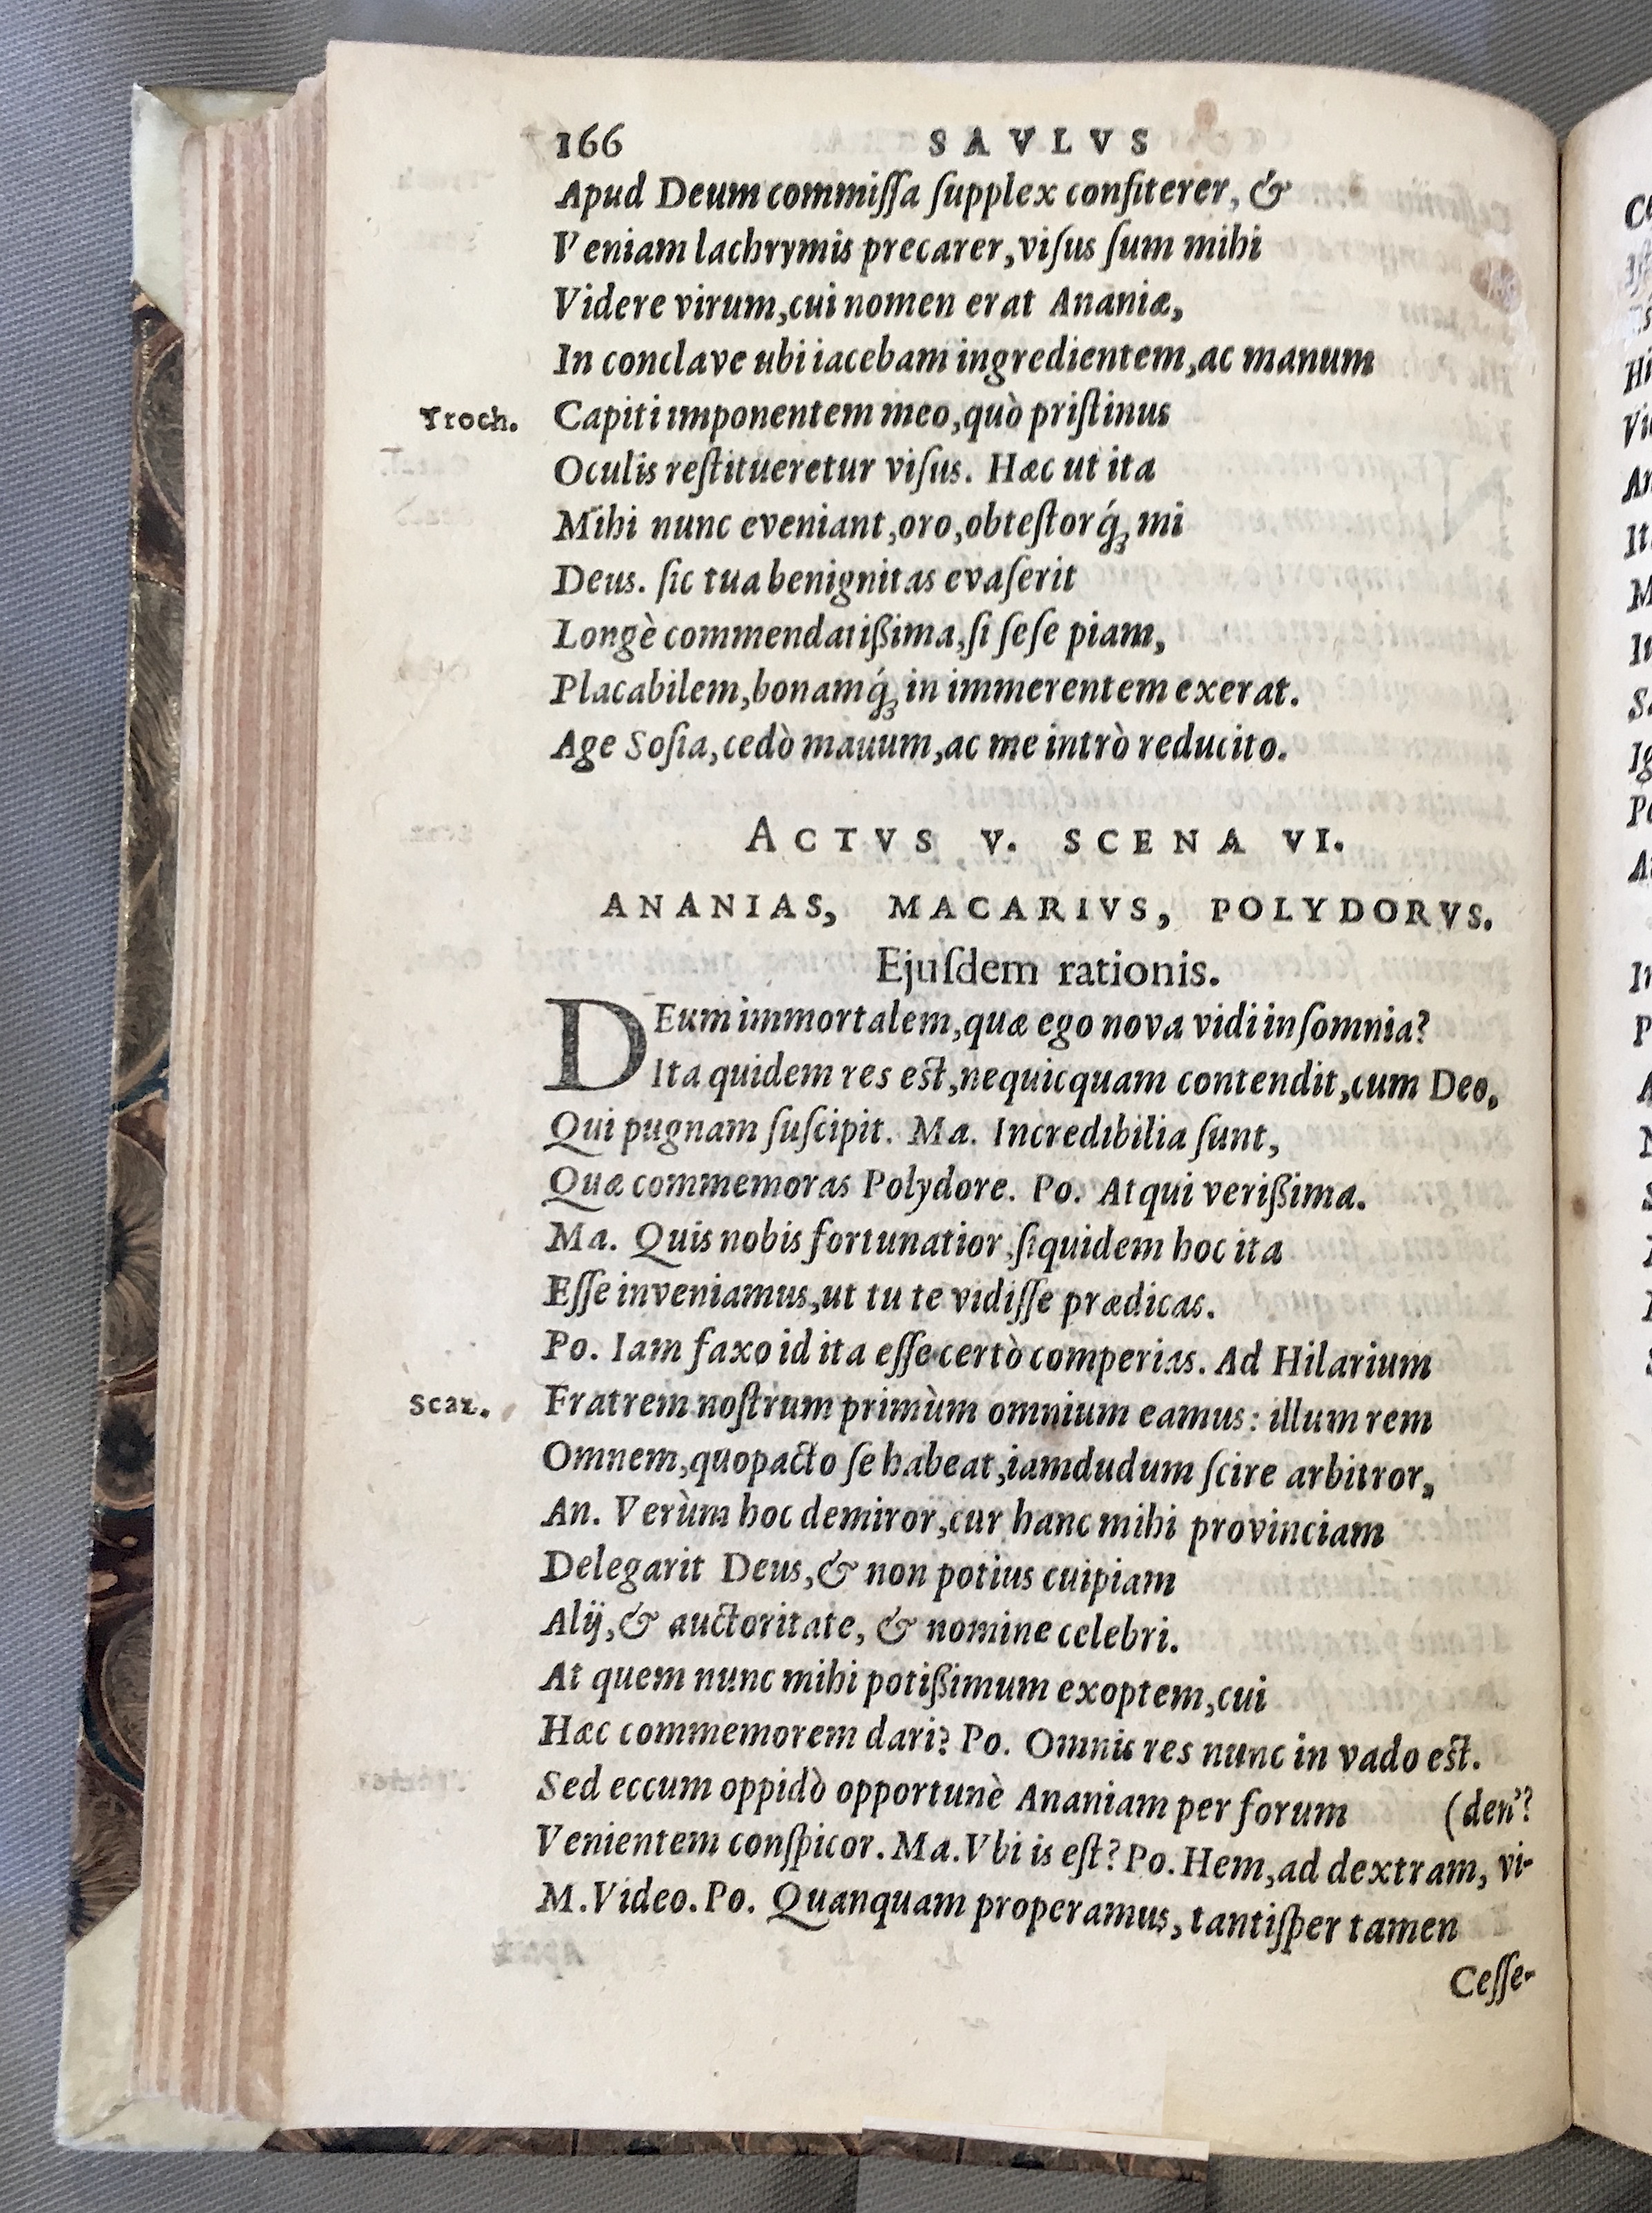 166 SAVLVS
Apud Deum commiſſa ſupplex confiterer, &
Veniam lachrymis precarer, viſus ſum mihi
Videre virum, cui nomen erat Ananiæ,
In conclave ubi iacebam ingredientem, ac manum
Troch. Capiti imponentem meo, quò priſtinus
Oculis reſtitueretur viſus. Hæc ut ita
Mihi nunc eveniant, oro, obteſtorq́ꝫ mi
Deus. ſic tua benignitas evaſerit
Longè commendatißima, ſi ſeſe piam,
Placabilem, bonamq́ꝫ in immerentem exerat.
Age Soſia, cedò mauum, ac me intrò reducito.
ACTVS V. SCENA VI.
ANANIAS, MACARIVS, POLYDORVS.
Ejuſdem rationis.
DEum immortalem, quæ ego nova vidi inſomnia?
Ita quidem res eſt, nequicquam contendit, cum Deo,
Qui pugnam ſuſcipit. Ma. Incredibilia ſunt,
Quæ commemoras Polydore. Po. Atqui verißima.
Ma. Quis nobis fortunatior, ſiquidem hoc ita
Eſſe inveniamus, ut tu te vidiſſe prædicas.
Po. Iam faxo id ita eſſe certò comperias. Ad Hilarium
Scaz. Fratrem noſtrum primùm omnium eamus: illum rem
Omnem, quopacto ſe habeat, iamdudum ſcire arbitror,
An. Verùm hoc demiror, cur hanc mihi provinciam
Delegarit Deus, & non potius cuipiam
Alij, & auctoritate, & nomine celebri.
At quem nunc mihi potißimum exoptem, cui
Hæc commemorem dari? Po. Omnis res nunc in vado eſt.
Sed eccum oppidò opportunè Ananiam per forum (den'?
Venientem conſpicor. Ma. Vbi is eſt? Po. Hem, ad dextram, vi-
M. Video. Po. Quanquam properamus, tantiſper tamen
Ceſſe-